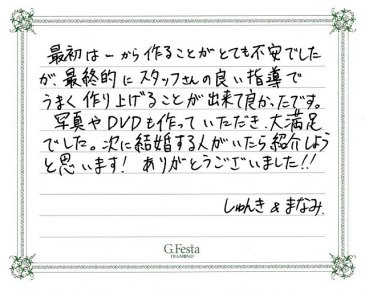 最初は一から作ることがとても不安でした
が最終的にスタッフさんの良い指導で
うまく作り上げることが出来て良かったです。
写真やDVDも作っていただき、大満足
でした。次に結婚する人がいたら紹介しよう
と思います！ありがとうございました!!
しゅんき & まなみ.
G.Festa
DIAMOND